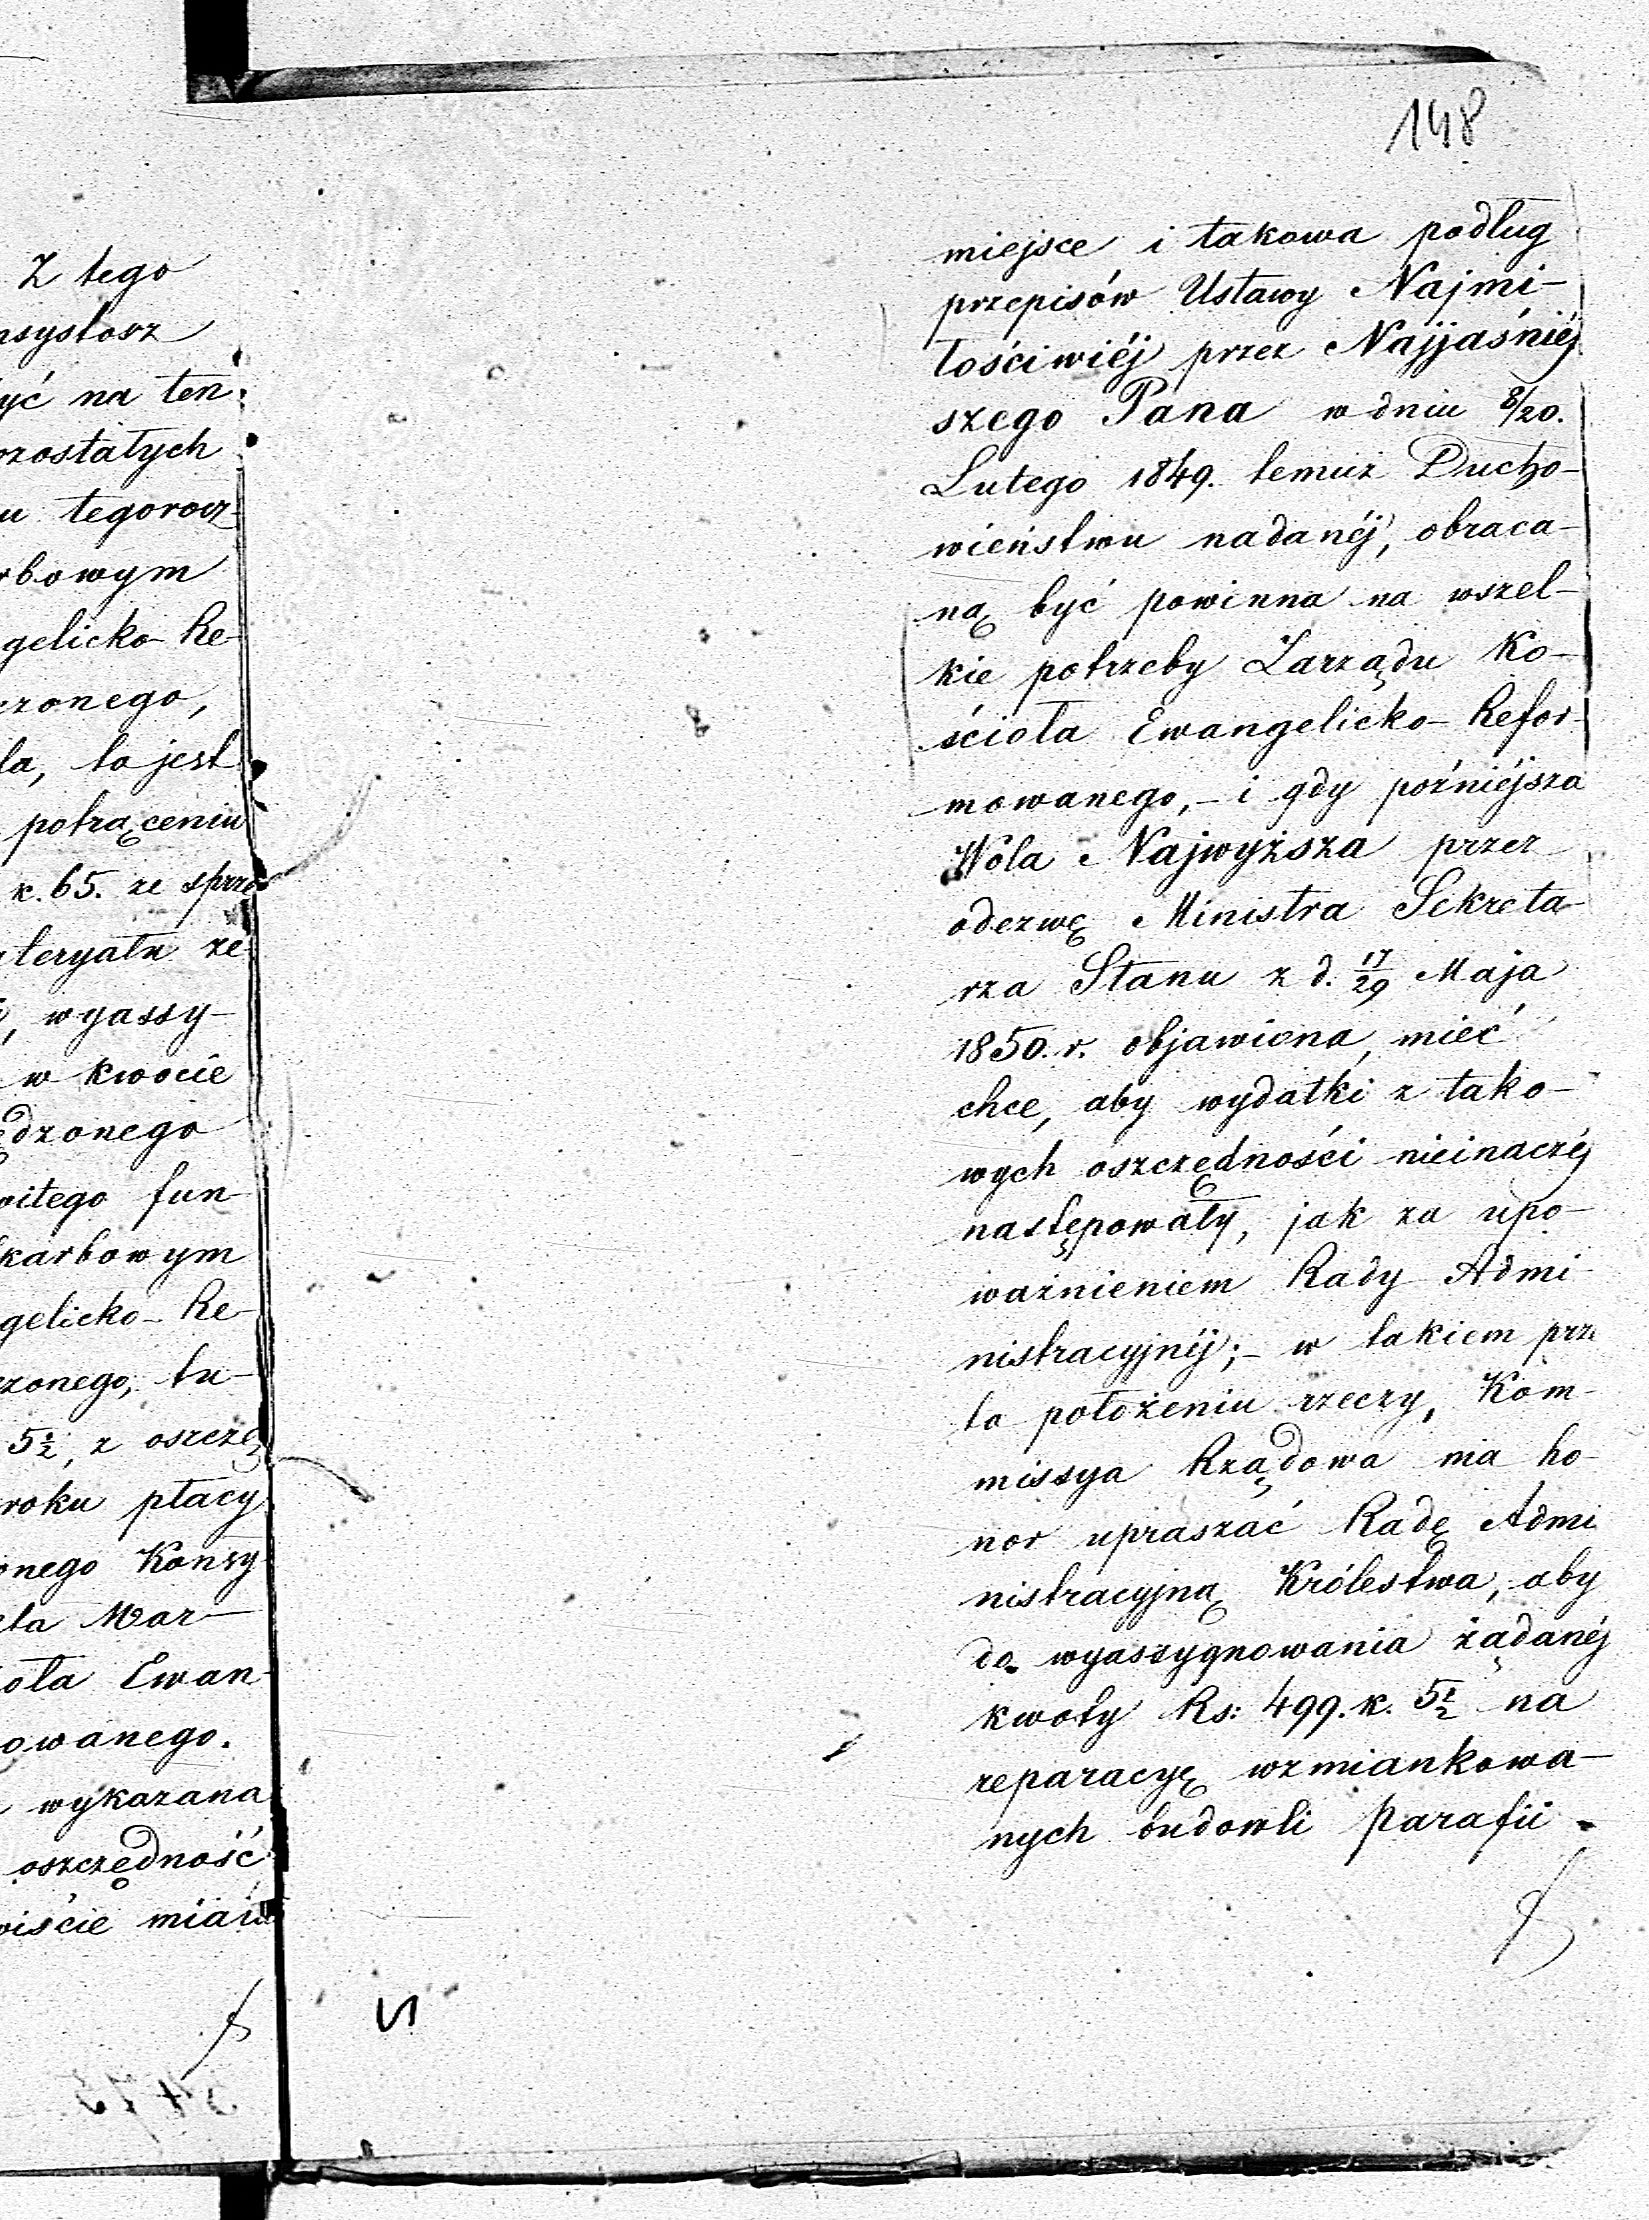 Z tego
nsystorz
yć na ten
ozostałych
u tegorocz-
rbowym
gelicko-Re-
czonego,
la, to jest
potrąceniu
k. 65. ze sprze
ateryału ze
, wyassy-
w kwocie
ędzonego
witego fun-
karbowym
gelicko-Re-
czonego, tu-
5½, z oszczę
roku płacy
onego Konsy-
eta War-
oła Ewan-
owanego.
wykazana
oszczędność
wiście miała
148
miejsce i takowa podług
przepisów Ustawy Najmi-
łościwiéj przez Najjaśniéj
szego Pana w dniu 8/20.
Lutego 1849. temuż Ducho-
wieństwu nadanéj, obraca-
ną być powinna na wszel-
kie potrzeby Zarządu Ko-
ścioła Ewangelicko-Refor-
mowanego,- i gdy poźniéjsza
Wola Najwyższa przez
odezwę Ministra Sekreta-
rza Stanu z d. 17/29 Maja
1850. r. objawiona, mieć
chce, aby wydatki z tako-
wych oszczędności nieinaczéj
następowały, jak za upo-
ważnieniem Rady Admi-
nistracyjnéj;- w takiem prze
to położeniu rzeczy, Kom-
missya Rządowa ma ho-
nor upraszać Radę Admi
nistracyjną Królestwa, aby
do wyassygnowania żądanéj
kwoty Rs: 499. k. 5½ na
reparacyę wzmiankowa-
nych budowli Parafii